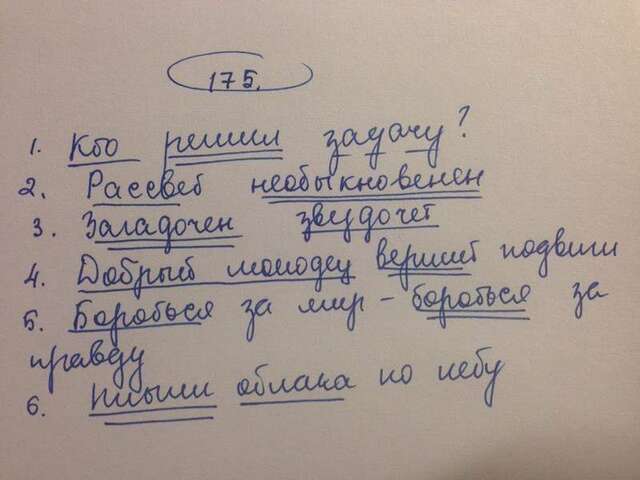 175.
1. Кто решил задачу?
2. Рассвет необыкновенен
3. Загадочен звездочёт
4. Добрый молодец вершит подвиги
5. Бороться за мир - бороться за
правду
6. Плыли облака по небу